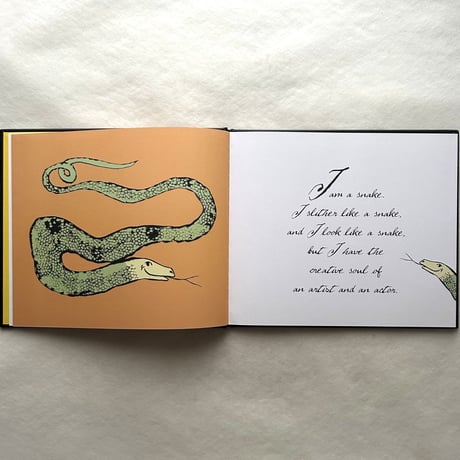 I am a snake.
I slither like a snake,
and I look like a snake,
but I have the
creative soul of
an artist and an actor.